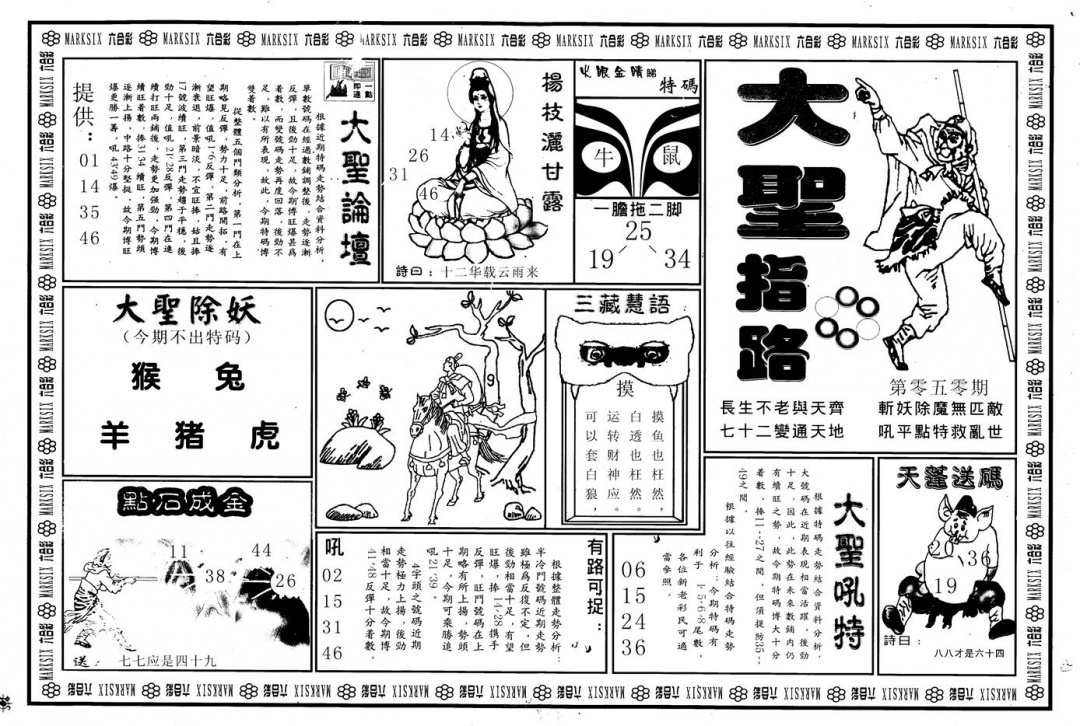 MARKSIX 六合彩 MARKSIX 六合彩 MARKSIX 六合彩 MARKSIX 六合彩 MARKSIX 六合彩 MARKSIX 六合彩 MARKSIX 六合彩 MARKSIX 六合彩 MARKSIX 六合彩 MARKSIX 六合彩
大聖指路
第零五零期
斬妖除魔無匹敵
吼平點特救亂世
長生不老與天齊
七十二變通天地
火眼金睛睇
特碼
牛
鼠
一膽拖二脚
25
19
34
楊枝灑甘露
14
26
31
46
詩曰：十二华载云雨来
一點即通
大聖論壇
根據近期特碼走勢結合資料分析，
單數號碼在經過數鋪調整後，走勢逐漸
反彈，且後勁十足，故今期博旺爆甚爲
着數，而變號碼走勢再度回落，後勁不
足，雖以有所表現，故此，今期特碼博
雙着數。
從整體五個門類分析，第一門在上
期略見反彈，勢力十足，前路開拓，有
望旺爆，值吼1·6反彈，第二門走勢逐
漸衰退，前景暗淡，不宜旺捧，姑且捧
17號波續旺，第三門走勢趨于平穩，後
勁十足，值吼21·28反彈，第四門在連
續打旺兩鋪後，走勢更加强勁，今期博
續旺看數，捧31·34續旺，第五門勢頭
逐漸上揚，中路十分堅挺，故今期博旺
爆更勝一籌，吼43·49爆。
提供：
01
14
35
46
大聖除妖
（今期不出特码）
猴 兔
羊 猪 虎
9
三藏慧語
摸
摸鱼也枉然，
白透也枉然。
运转财神应，
可以套白狼。
點石成金
11
44
38
26
送：七七应是四十九
有路可捉：
根據整體走勢分析：
半冷門號碼近期走勢
雖極爲反復不定，但
後勁相當十足，有望
旺爆，捧14·28携手
反彈，旺門號碼在上
期略有所上揚，勢頭
十足，今期可乘勝追
吼21·39。
4字頭之號碼近期
走勢極力上揚，後勁
相當十足，故今期博
41·48反彈十分着數。
吼
02
15
31
46
大聖吼特
根據特碼走勢結合資料分析，
大號碼在近期表現相當活躍，後勁
十足，因此，此勢在未來數鋪内仍
有續旺之勢，故今期特碼博大十分
着數，捧11·27之間，但須提防35·
49之間。
根據以往經驗結合特碼走勢
分析：今期特碼有
利于 1·5·6·8尾數，
各位新老彩民可適
當參照。
06
15
24
36
天蓬送碼
20
36
19
詩曰：
八八才是六十四